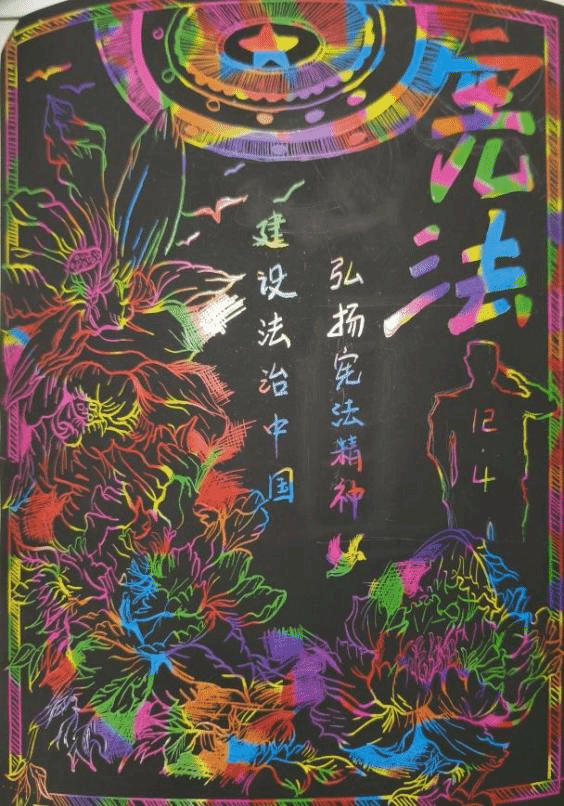 宪法
弘扬宪法精神
建设法治中国
12.4